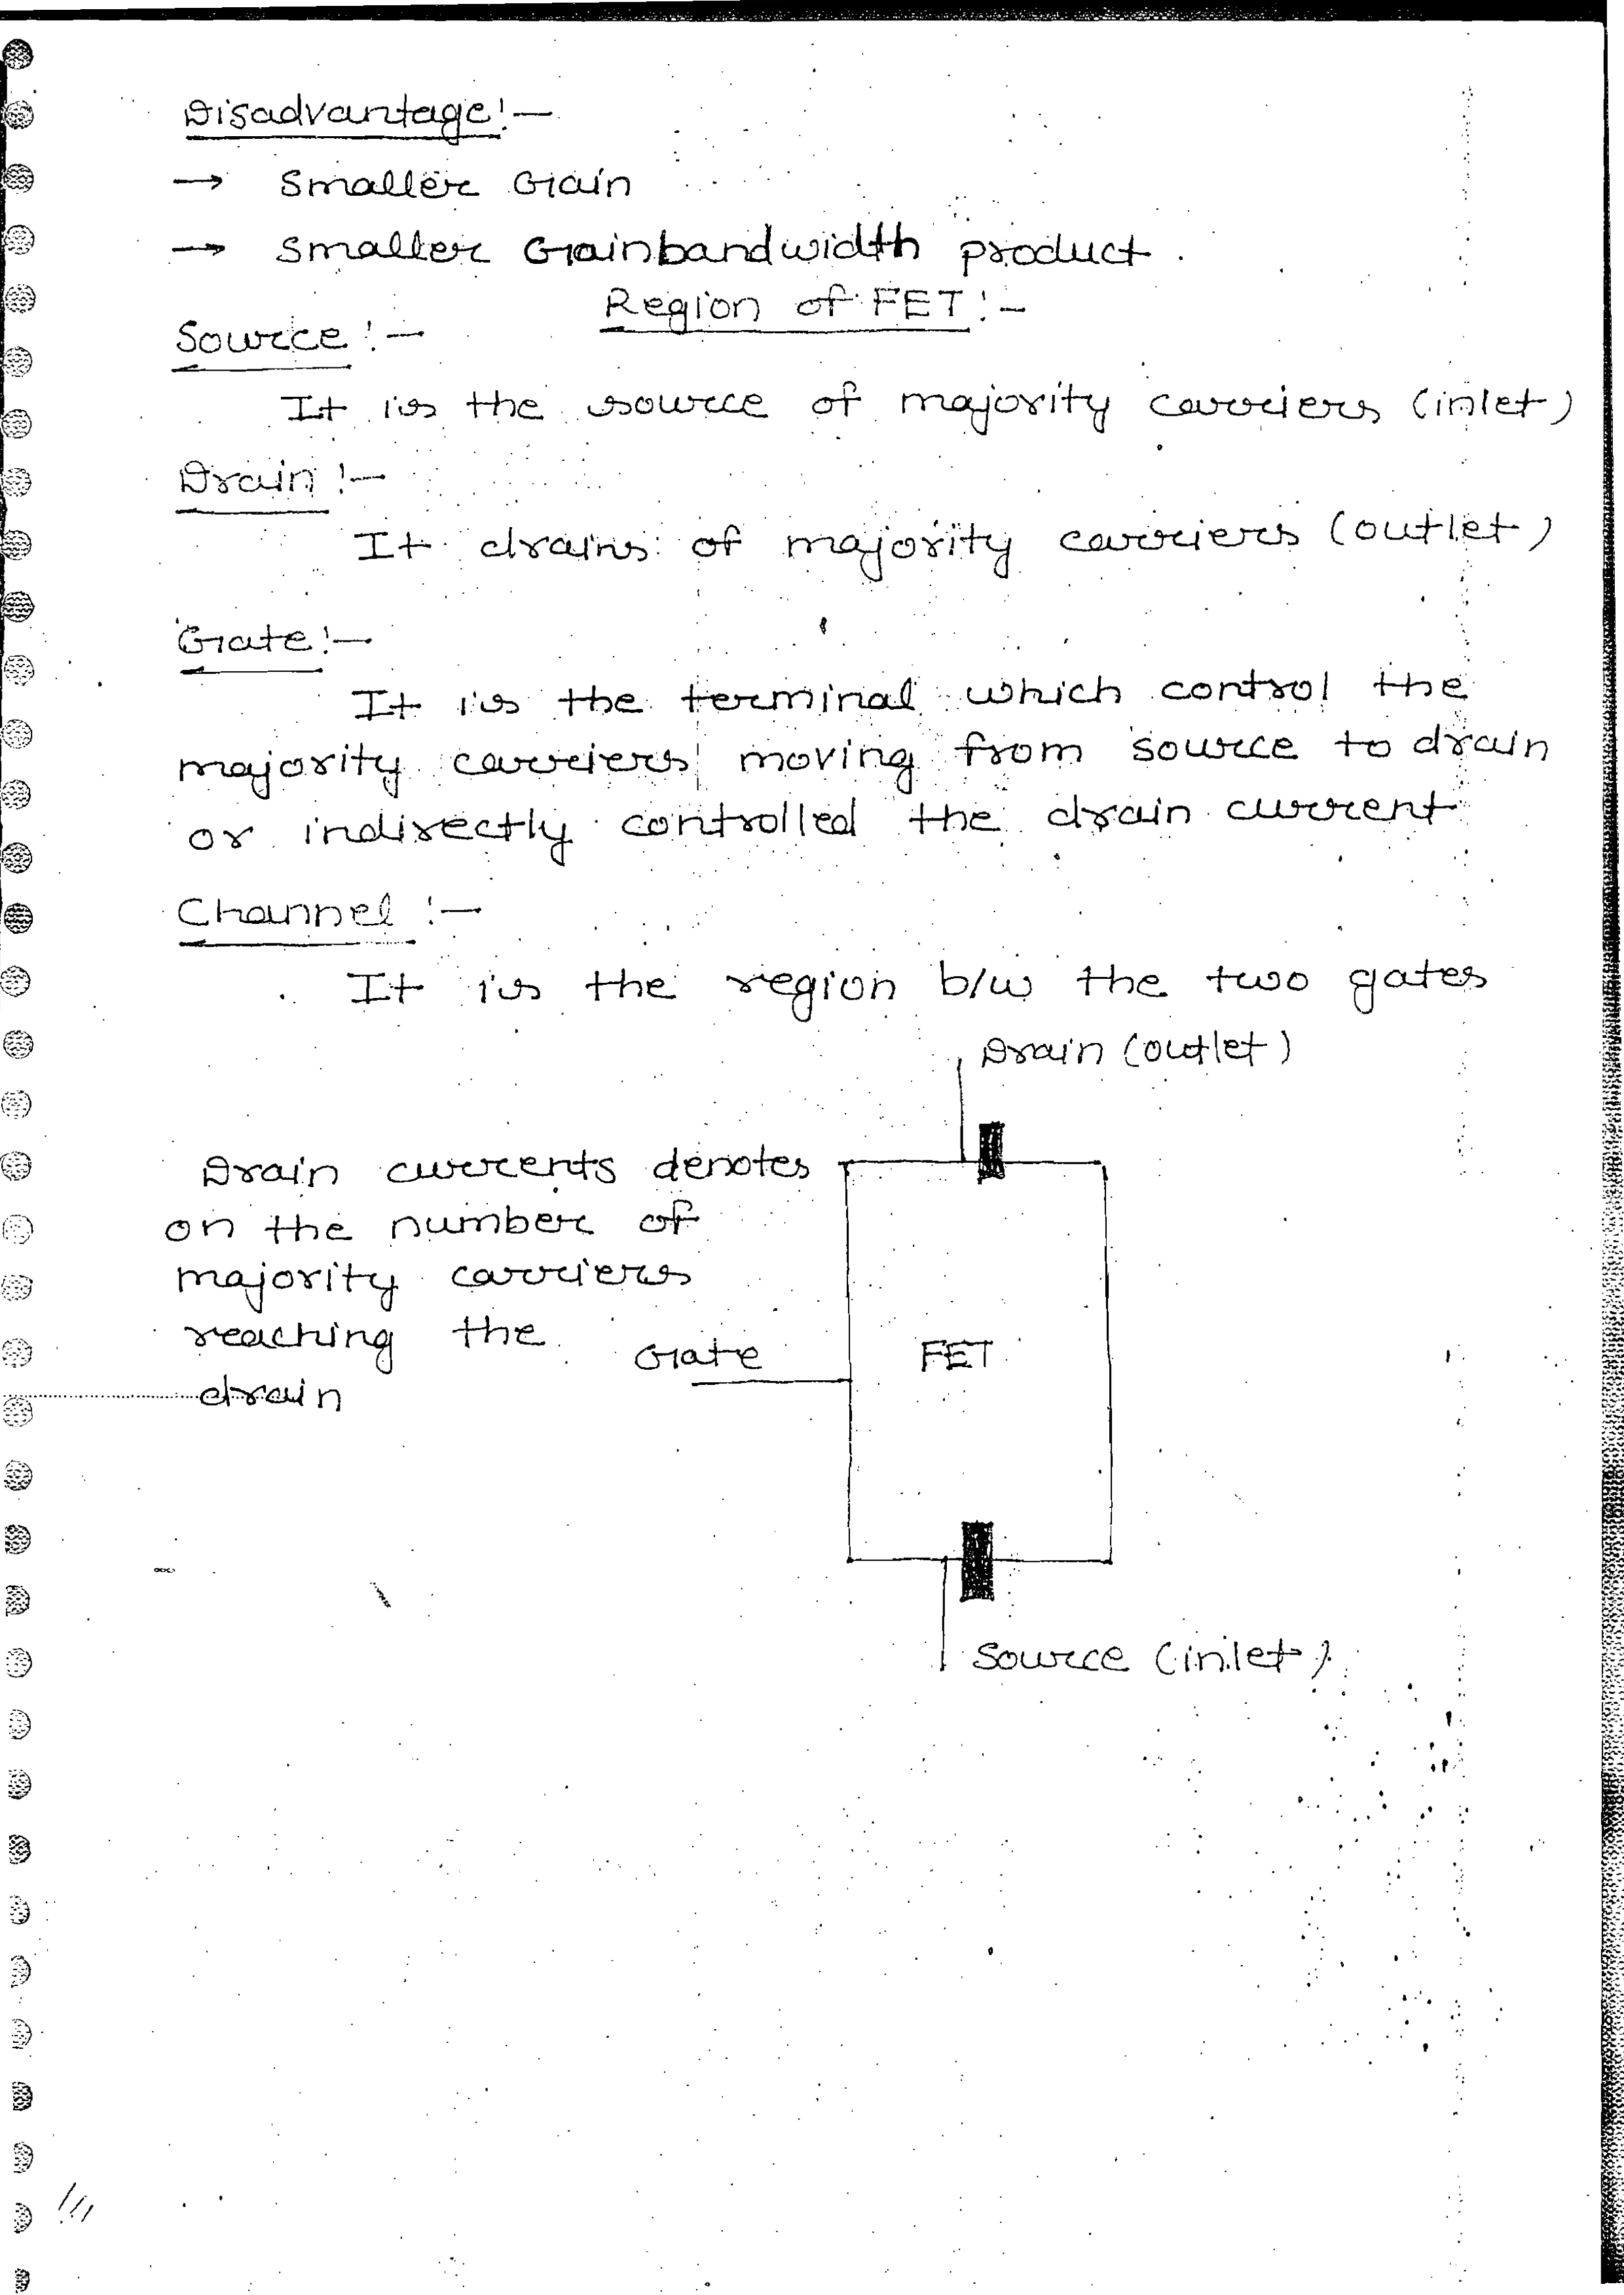 Disadvantage:-
→ Smaller Gain
→ Smaller Gainbandwidth product.
Region of FET:-
Source:-
It is the source of majority carriers (inlet)
Drain:-
It drains of majority carriers (outlet)
Gate:-
It is the terminal which control the
majority carriers moving from source to drain
or indirectly controlled the drain current
Channel:-
It is the region b/w the two gates
Drain (outlet)
Drain currents denotes
on the number of
majority carriers
reaching the
drain
Gate
FET
Source (inlet)